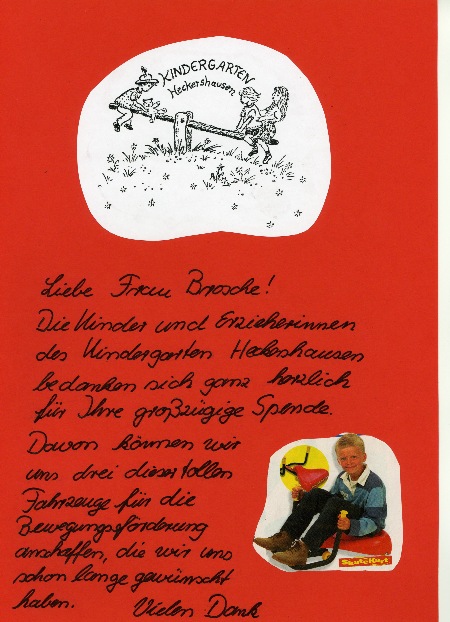 KINDERGARTEN
Heckershausen
Liebe Frau Brosche!
Die Kinder und Erzieherinnen
des Kindergarten Heckeshausen
bedanken sich ganz herzlich
für Ihre großzügige Spende.
Davon können wir
uns drei dieser tollen
Fahrzeuge für die
Bewegungsförderung
anschaffen, die wir uns
schon lange gewünscht
haben. Vielen Dank